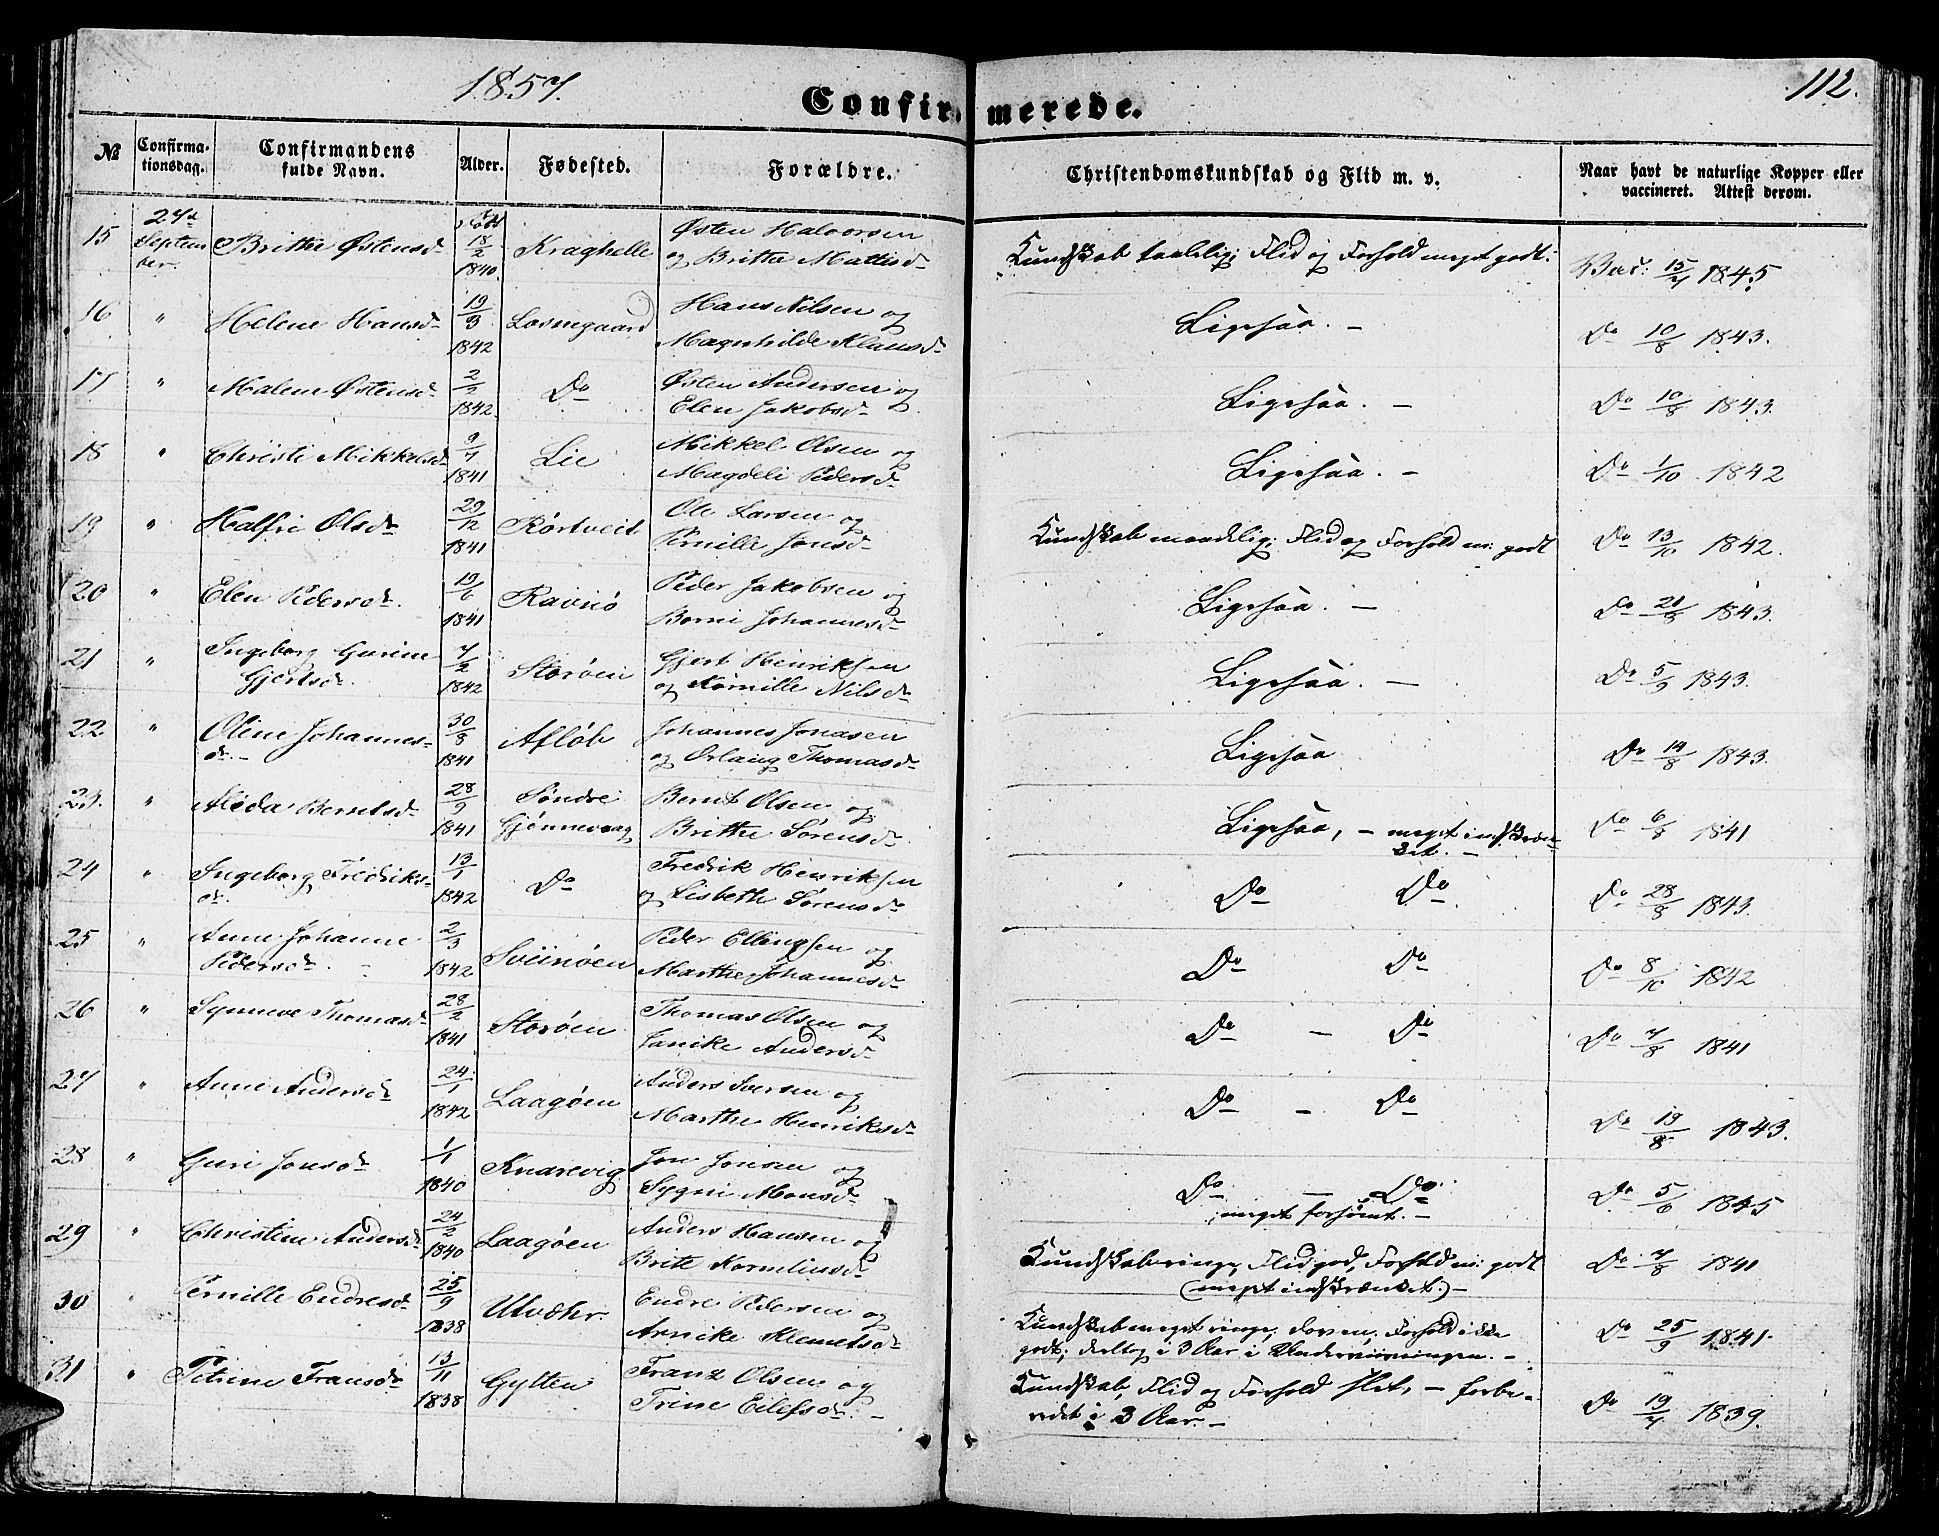 1857.
112.
Confirmerede.
№ Confirmationsdag. Confirmandens fulde Navn. Alder. Fødested. Forældre. Christendomskundskab og Flid m. v. Naar havt de naturlige Kopper eller vaccineret. Attest derom.
15 27d September. Brithe Østensd. født 18/2 1840. Kraghelle Østen Halvorsen og Brithe Mattisd. Kundskab taalelig; Flid og Forhold meget godt. Vac: 15/7 1845
16 " Helene Hansd. 19/3 1842 Losnegaard Hans Nilsen og Magnhilde Klausd. Ligesaa. - Do 10/8 1843.
17 " Malene Østensd. 2/2 1842. Do Østen Andersen og Elen Jakobsd. Ligesaa. - Do 10/8 1843.
18 " Christi Mikkelsd. 9/7 1841 Lie Mikkel Olsen og Magdeli Pedersd. Ligesaa. - Do 1/10 1842
19 " Halfri Olsd. 29/12 1841 Rørtveit Ole Larsen og Pernille Jonsd. Kundskab maadelig; Flid og Forhold m: godt Do 13/10 1842.
20 " Elen Pedersd. 19/6 1841 Ravnø Peder Jakobsen og Borni Johannesd. Ligesaa. - Do 21/8 1843.
21 " Ingeborg Gurine Gjertsd. 7/2 1842 Storøen Gjert Henriksen og Pernille Nilsd. Ligesaa. - Do 5/9 1843.
22 " Oline Johannesd. - 30/8 1841 Afløb Johannes Jonasen og Ørlaug Thomasd. Ligesaa Do 14/8 1843.
23. " Alida Berntsd. 28/9 1841 Søndre Gjønnevaag Bernt Olsen og Brithe Sørensd. Ligesaa, - meget indskrænket. - Do 6/8 1841
24 " Ingeborg Fredriksd. 13/1 1842 Do Fredrik Henriksen og Lisbeth Sørensd. Do Do Do 28/8 1843.
25 " Anne Johanne Pedersd. - 2/3 1842 Sveinøen Peder Ellingsen og Marthe Johannesd. Do Do Do 8/10 1842
26 " Synneve Thomasd. 28/2 1841 Storøen Thomas Olsen og Janike Andersd. Do - Do Do 7/8 1841
27 " Anne Andersd. 24/1 1842 Laagøen Anders Iversen og Marthe Henriksd. Do - Do Do 19/8 1843.
28 " Guri Jonsd. 1/1 1840 Knarevig Jon Jonsen og Sygni Monsd. Do - Do meget forsømt. - Do 5/6 1845
29 " Christine Andersd. 24/2 1840 Laagøen Anders Hansen og Brite Korneliusd. Kundskab ringe, Flid god, Forhold m: godt (meget indskrænket.) - Do 7/8 1841
30 " Pernille Endresd. 25/9 1838 Utvæhr. Endre Pedersen og Annike Klemetsd. Kundskab meget ringe, doven, Forhold ikke godt; deeltog i 3 Aar i Underviisningen. - Do 25/9 1841.
31 " Petrine Fransd. 13/11 1838 Gytten Franz Olsen og Trine Eilefsd. - Kundskab, Flid og Forhold slet, - forberedet i 3 Aar. - Do 19/7 1839.